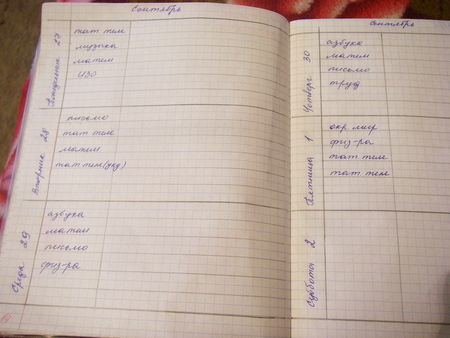 Сентябрь
Понедельник 27
тат тел
музыка
матем
ИЗО
Вторник 28
письмо
тат тел
матем
тат тел
Среда 29
азбука
матем
письмо
физ-ра
Сентябрь
Четверг 30
азбука
матем
письмо
труд
Пятница 1
окр мир
физ-ра
тат тел
тат тел
Суббота 2